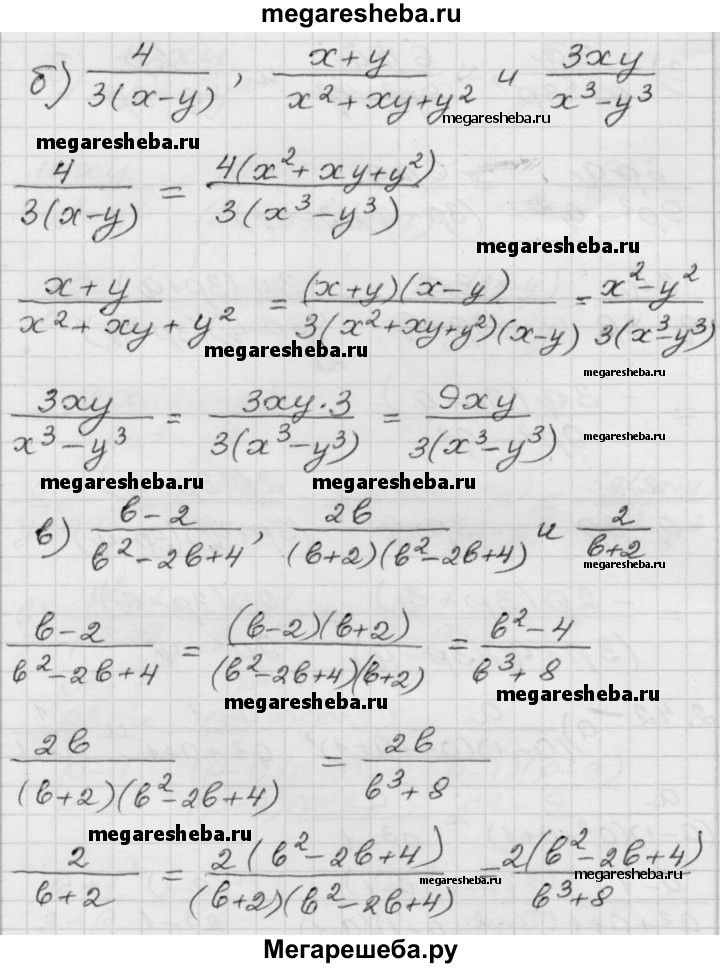 megaresheba.ru
б) 4/(3(x-y)), (x+y)/(x²+xy+y²) и 3xy/(x³-y³)
megaresheba.ru
megaresheba.ru
4/(3(x-y)) = 4(x²+xy+y²)/(3(x³-y³))
megaresheba.ru
(x+y)/(x²+xy+y²) = (x+y)(x-y)/(3(x²+xy+y²)(x-y)) = (x²-y²)/(3(x³-y³))
megaresheba.ru
megaresheba.ru
3xy/(x³-y³) = 3xy·3/(3(x³-y³)) = 9xy/(3(x³-y³))
megaresheba.ru
megaresheba.ru
megaresheba.ru
в) (b-2)/(b²-2b+4), 2b/((b+2)(b²-2b+4)) и 2/(b+2)
megaresheba.ru
(b-2)/(b²-2b+4) = (b-2)(b+2)/((b²-2b+4)(b+2)) = (b²-4)/(b³+8)
megaresheba.ru
megaresheba.ru
2b/((b+2)(b²-2b+4)) = 2b/(b³+8)
megaresheba.ru
2/(b+2) = 2(b²-2b+4)/((b+2)(b²-2b+4)) = 2(b²-2b+4)/(b³+8)
megaresheba.ru
megaresheba.ru
Мегарешеба.ру